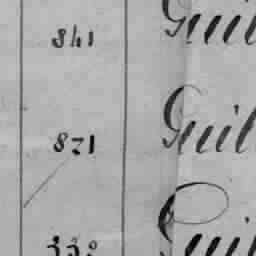 841 Guil
821 Guil
Guil